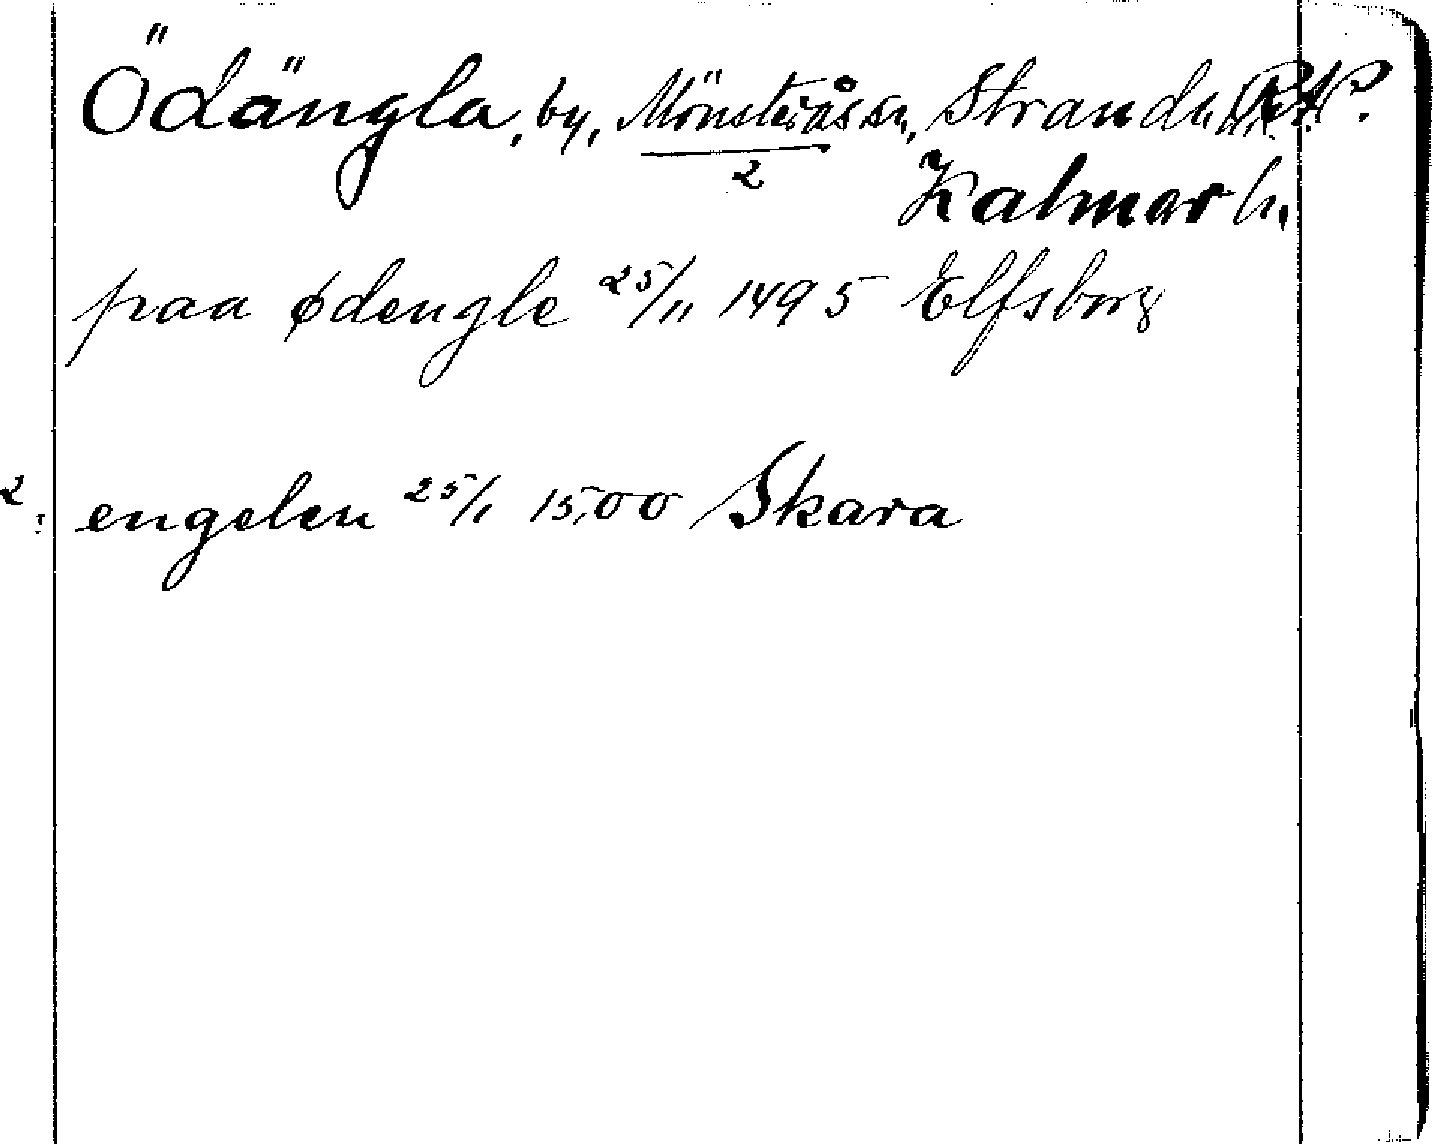 Ödängla, by, Mönsterås sn, Strands h. RAP.
2
Kalmar l.
paa ødengle 25/11 1495 Elfsborg
2: engelen 25/1 1500 Skara